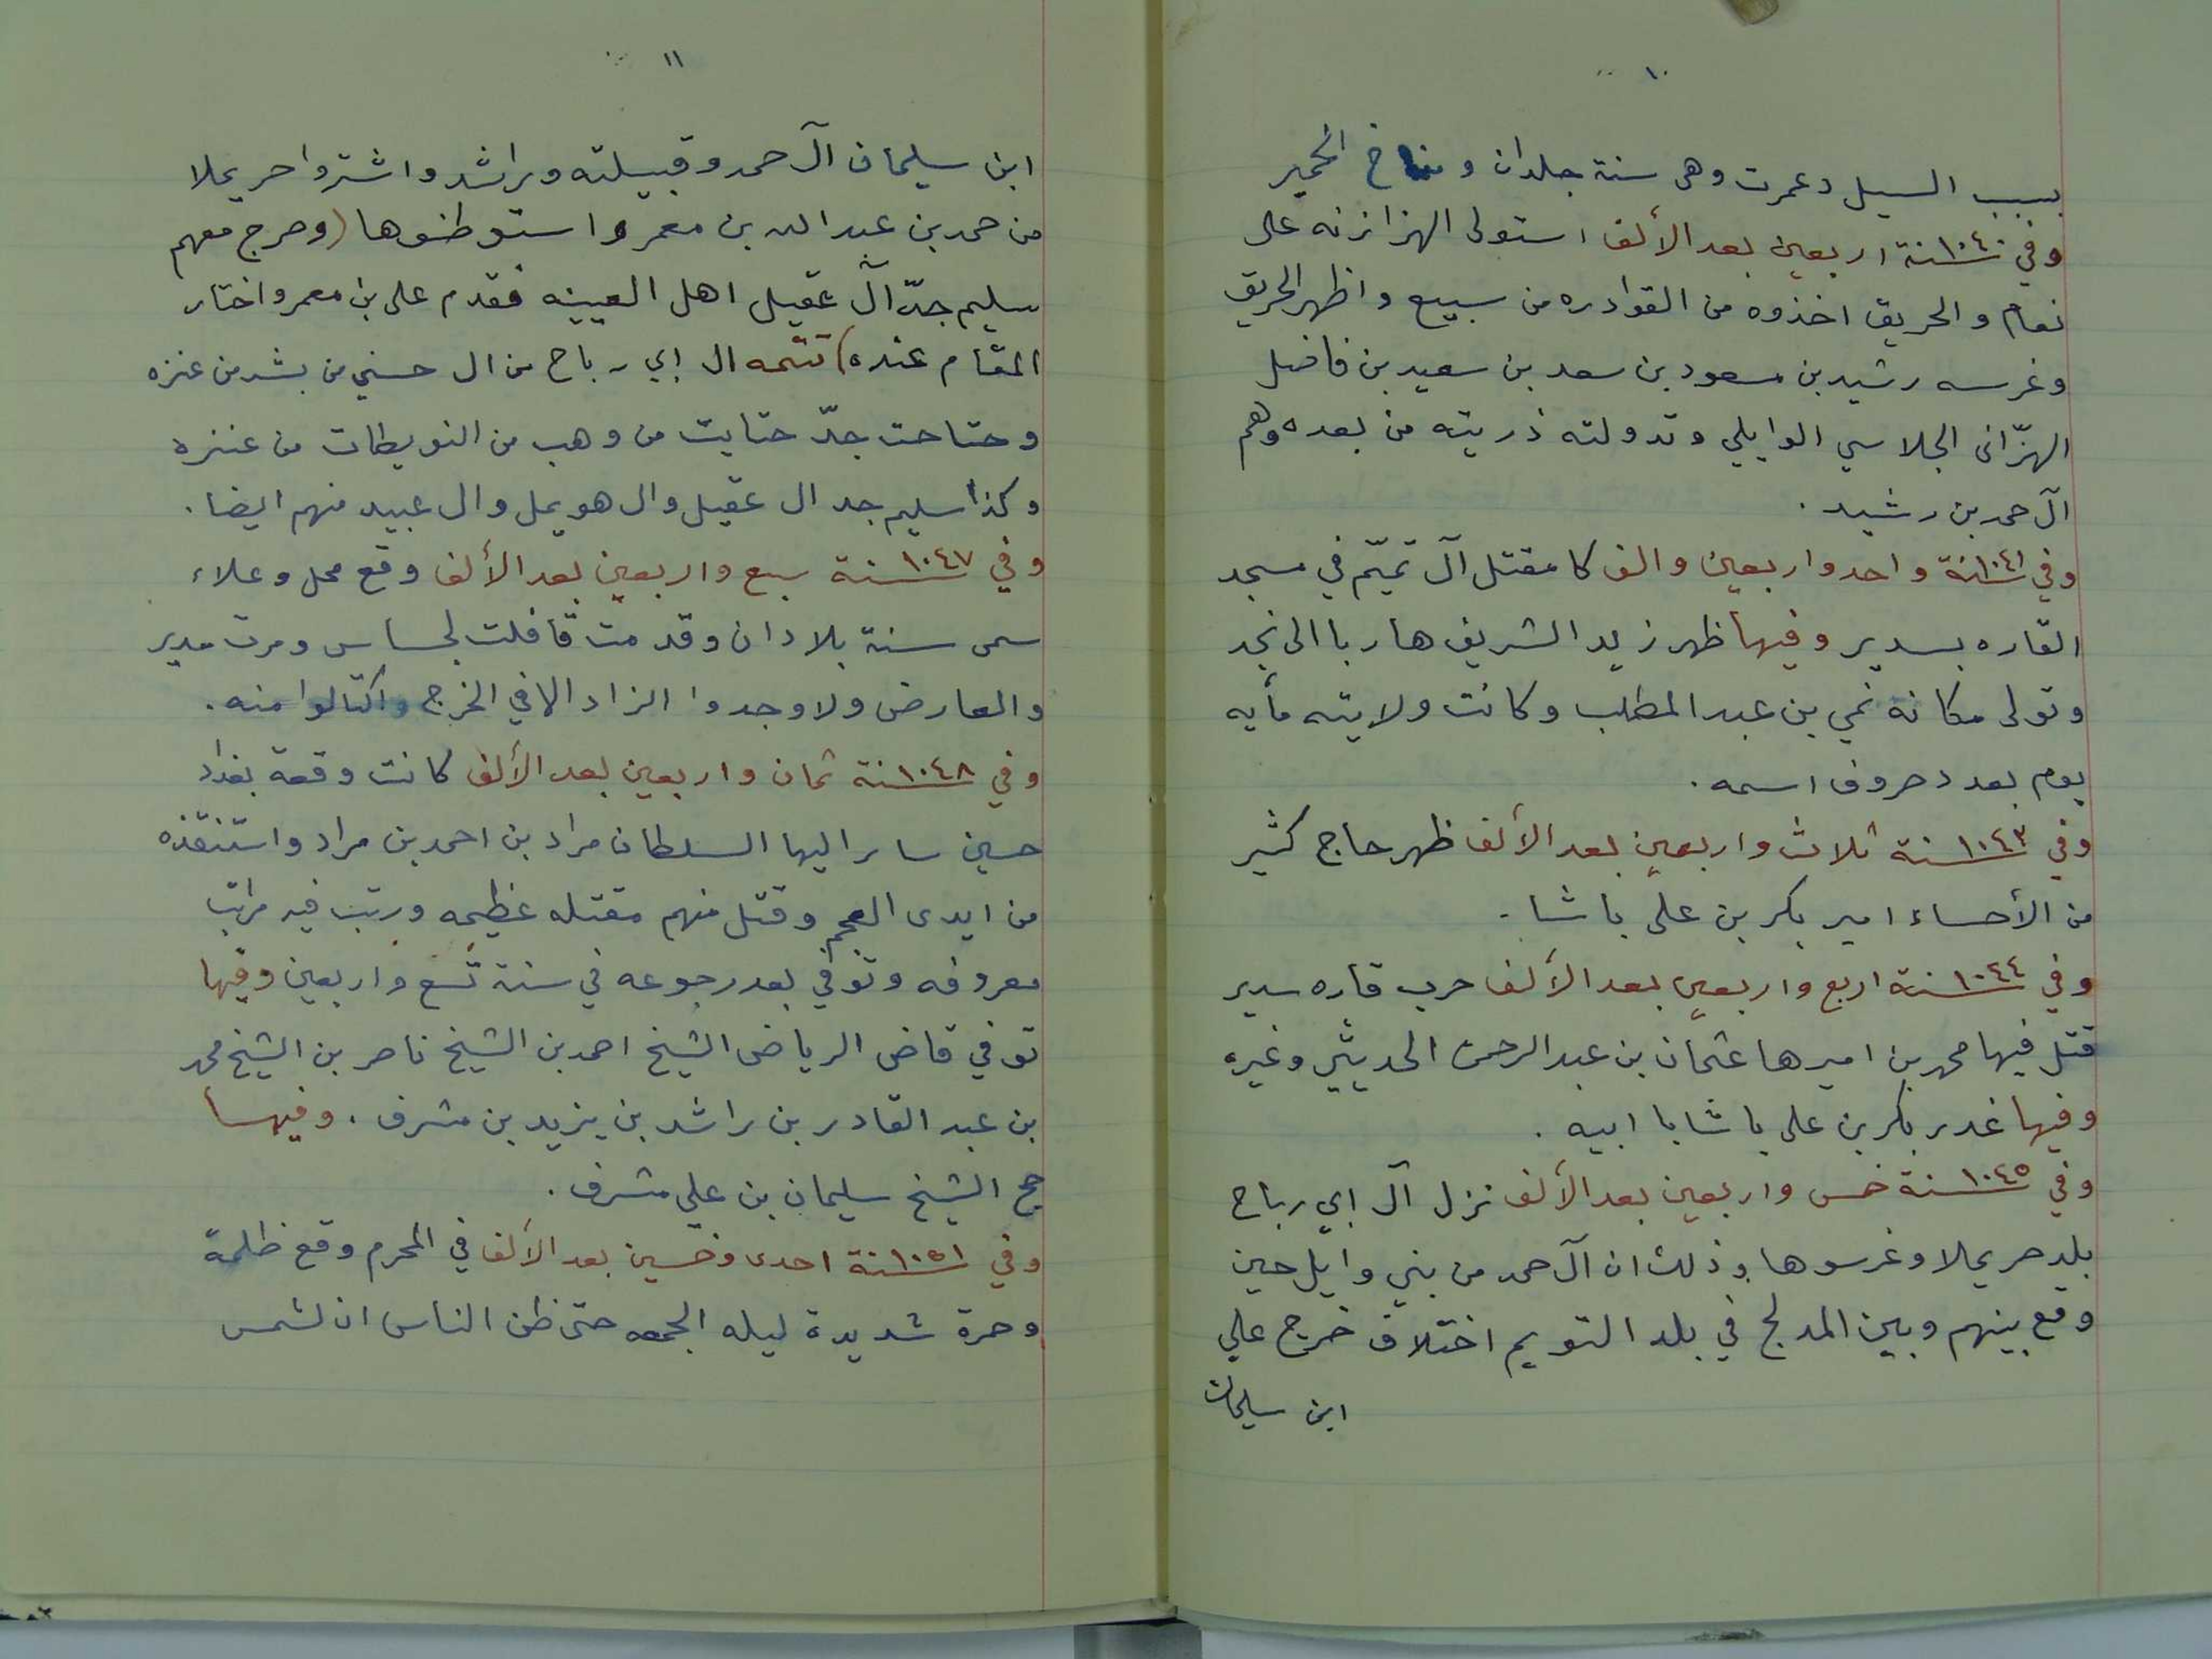 ١٠
بسبب السيل وعمرت وهى سنة جلدان ومناخ الحمير
وفي ١٠٤٠سنة اربعين بعد الألف استولى الهزازنه على
نعام والحريق اخذوه من القوادره من سبيع واظهر الحريق
وغرسه رشيد بن مسعود بن سعد بن سعيد بن فاضل
الهزّانى الجلاسي الوايلي وتدولته ذريته من بعده وهم
آل حمد بن رشيد .
وفي ١٠٤١سنة واحد واربعين والف كا مقتل آل تميّم في مسجد
القاره بسدير وفيها ظهر زيد الشريف هاربا الى نجد
وتولى مكانه نمي بن عبد المطلب وكانت ولايته مأيه
يوم بعدد حروف اسمه .
وفي ١٠٤٣سنة ثلاث واربعين بعد الألف ظهر حاج كثير
من الأحساء امير بكر بن على باشا .
وفي ١٠٤٤سنة اربع واربعين بعد الألف حرب قاره سدير
قتل فيها محمد بن اميرها عثمان بن عبد الرحمن الحديثي وغيره
وفيها غدر بكر بن على باشا با ابيه .
وفي ١٠٤٥سنة خمس واربعين بعد الألف نزل آل ابي رباح
بلد حريملا وغرسوها وذلك ان آل حمد من بني وايل حين
وقع بينهم وبين المدلج في بلد التويم اختلاف خرج علي
ابن سليمان
١١
ابن سليمان آل حمد وقبيلته وراشد واشتروا حريملا
من حمد بن عبد الله بن معمر واستوطنوها (وخرج معهم
سليم جدّ آل عقيل اهل العيينه فقدم على بن معمر واختار
المقام عنده) تتمه ال ابي رباح من ال حسني من بشر من عنزه
وحتاحت جدّ حتايت من وهب من النويطات من عنزه
وكذا سليم جد ال عقيل وال هويمل وال عبيد منهم ايضا .
وفي ١٠٤٧سنة سبع واربعين بعد الألف وقع محل وغلاء
سمى سنة بلادان وقدمت قافلت لحساس ومرت سدير
والعارض ولا وجدوا الزاد الا في الخرج واكتالوا منه .
وفي ١٠٤٨سنة ثمان واربعين بعد الألف كانت وقعة بغداد
حسين سار اليها السلطان مراد بن احمد بن مراد واستنقذه
من ايدى العجم وقتل منهم مقتله عظيمه ورتب فيه مراتب
معروفه وتوفي بعد رجوعه في سنة تسع واربعين وفيها
توفي قاضى الرياض الشيخ احمد بن الشيخ ناصر بن الشيخ محمد
بن عبد القادر بن راشد بن يزيد بن مشرف . وفيها
حج الشيخ سليمان بن علي مشرف .
وفي ١٠٥١سنة احدى وخمسين بعد الألف في المحرم وقع ظلمة
وحمرة شديدة ليله الجمعه حتى ظن الناس ان لشمس